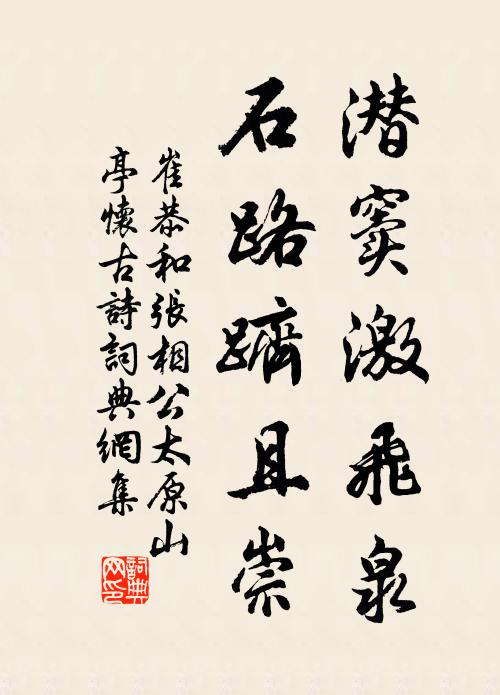 潜窦激飛泉
石路躋且崇
崔恭和張相公太原山
亭懷古詩詞典網集
詞典
网印